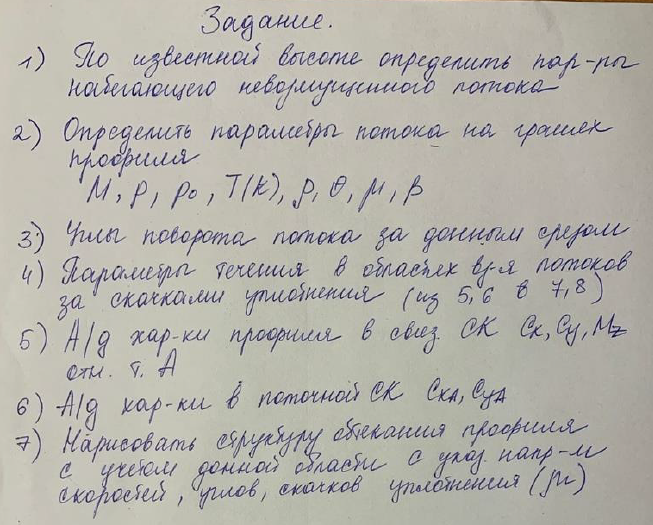 Задание.
1) По известной высоте определить пар-ры
набегающего невозмущенного потока
2) Определить параметры потока на гранях
профиля
M, p, p₀, T(K), ρ, θ, μ, β
3) Углы поворота потока за донным срезом
4) Параметры течения в областях вз-я потоков
за скачками уплотнения (из 5,6 в 7,8)
5) А/д хар-ки профиля в связ. СК Cx, Cy, Mz
отн. т. А
6) А/д хар-ки в поточной СК CxA, CyA
7) Нарисовать структуру обтекания профиля
с учетом донной области с указ. напр-й
скоростей, углов, скачков уплотнения